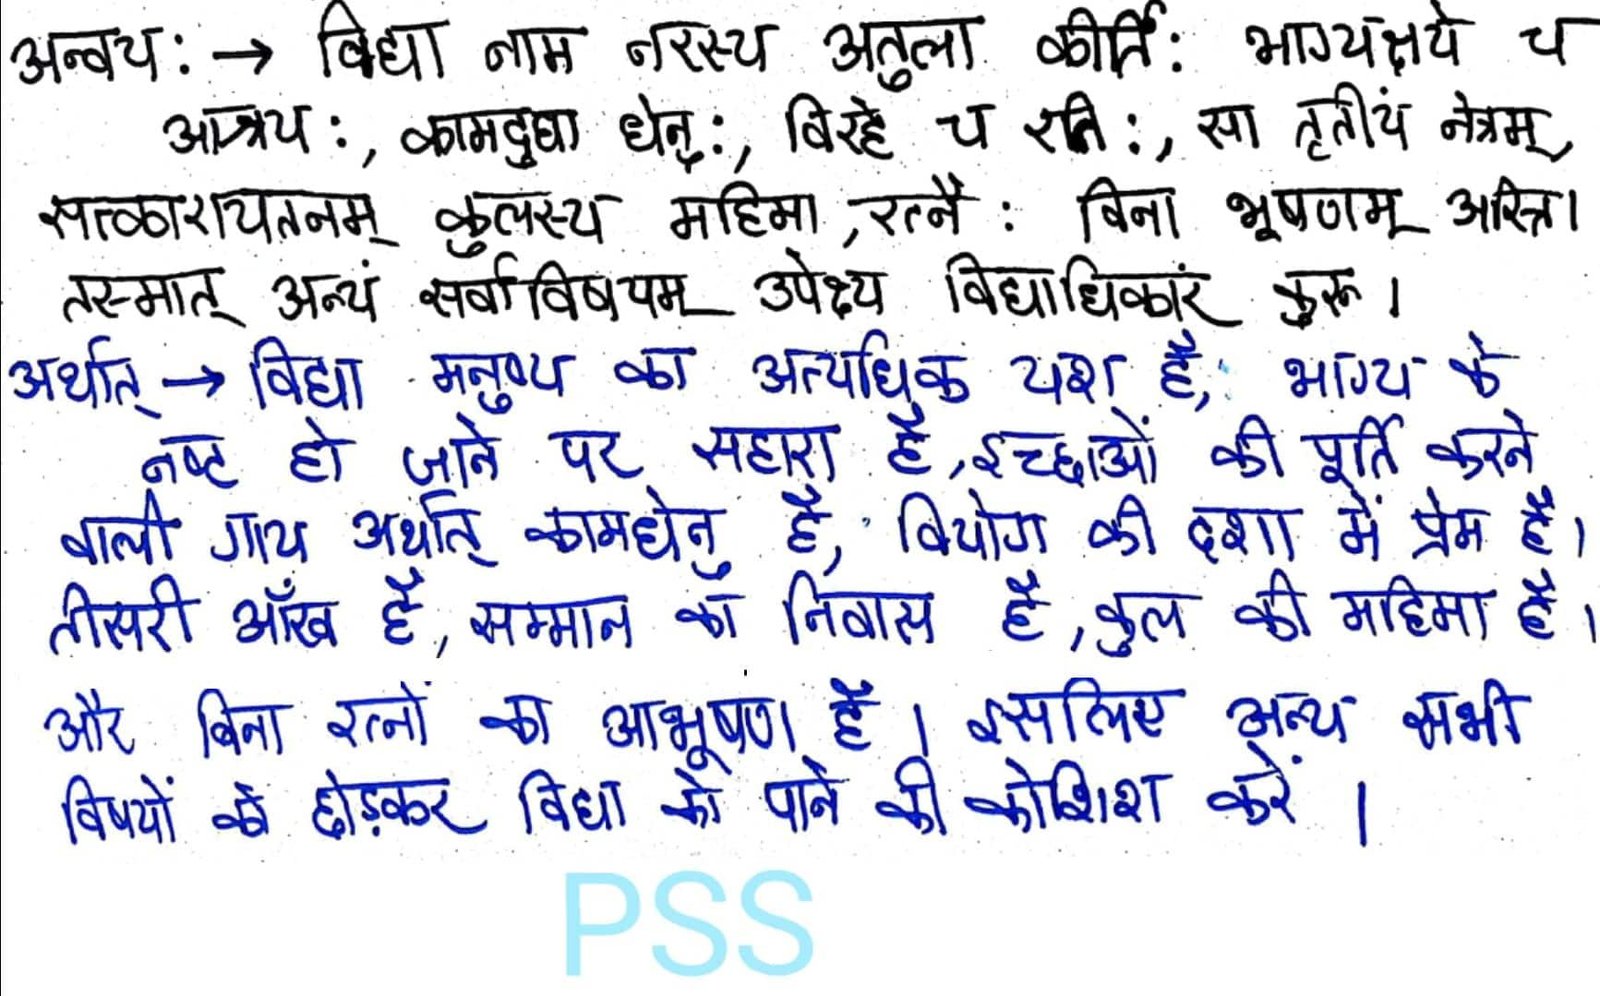 अन्वय: → विद्या नाम नरस्य अतुला कीर्ति: भाग्यक्षये च
आश्रय:, कामदुघा धेनु:, विरहे च रति:, सा तृतीयं नेत्रम्,
सत्कारायतनम् कुलस्य महिमा, रत्नै: विना भूषणम् अस्ति।
तस्मात् अन्यं सर्वाविषयम् उपेक्ष्य विद्याधिकारं कुरू।
अर्थात् → विद्या मनुष्य का अत्यधिक यश है, भाग्य के
नष्ट हो जाने पर सहारा है, इच्छाओं की पूर्ति करने
वाली गाय अर्थात् कामधेनु है, वियोग की दशा में प्रेम है।
तीसरी आँख है, सम्मान का निवास है, कुल की महिमा है।
और बिना रत्नों का आभूषण है। इसलिए अन्य सभी
विषयों को छोड़कर विद्या को पाने की कोशिश करें।
PSS